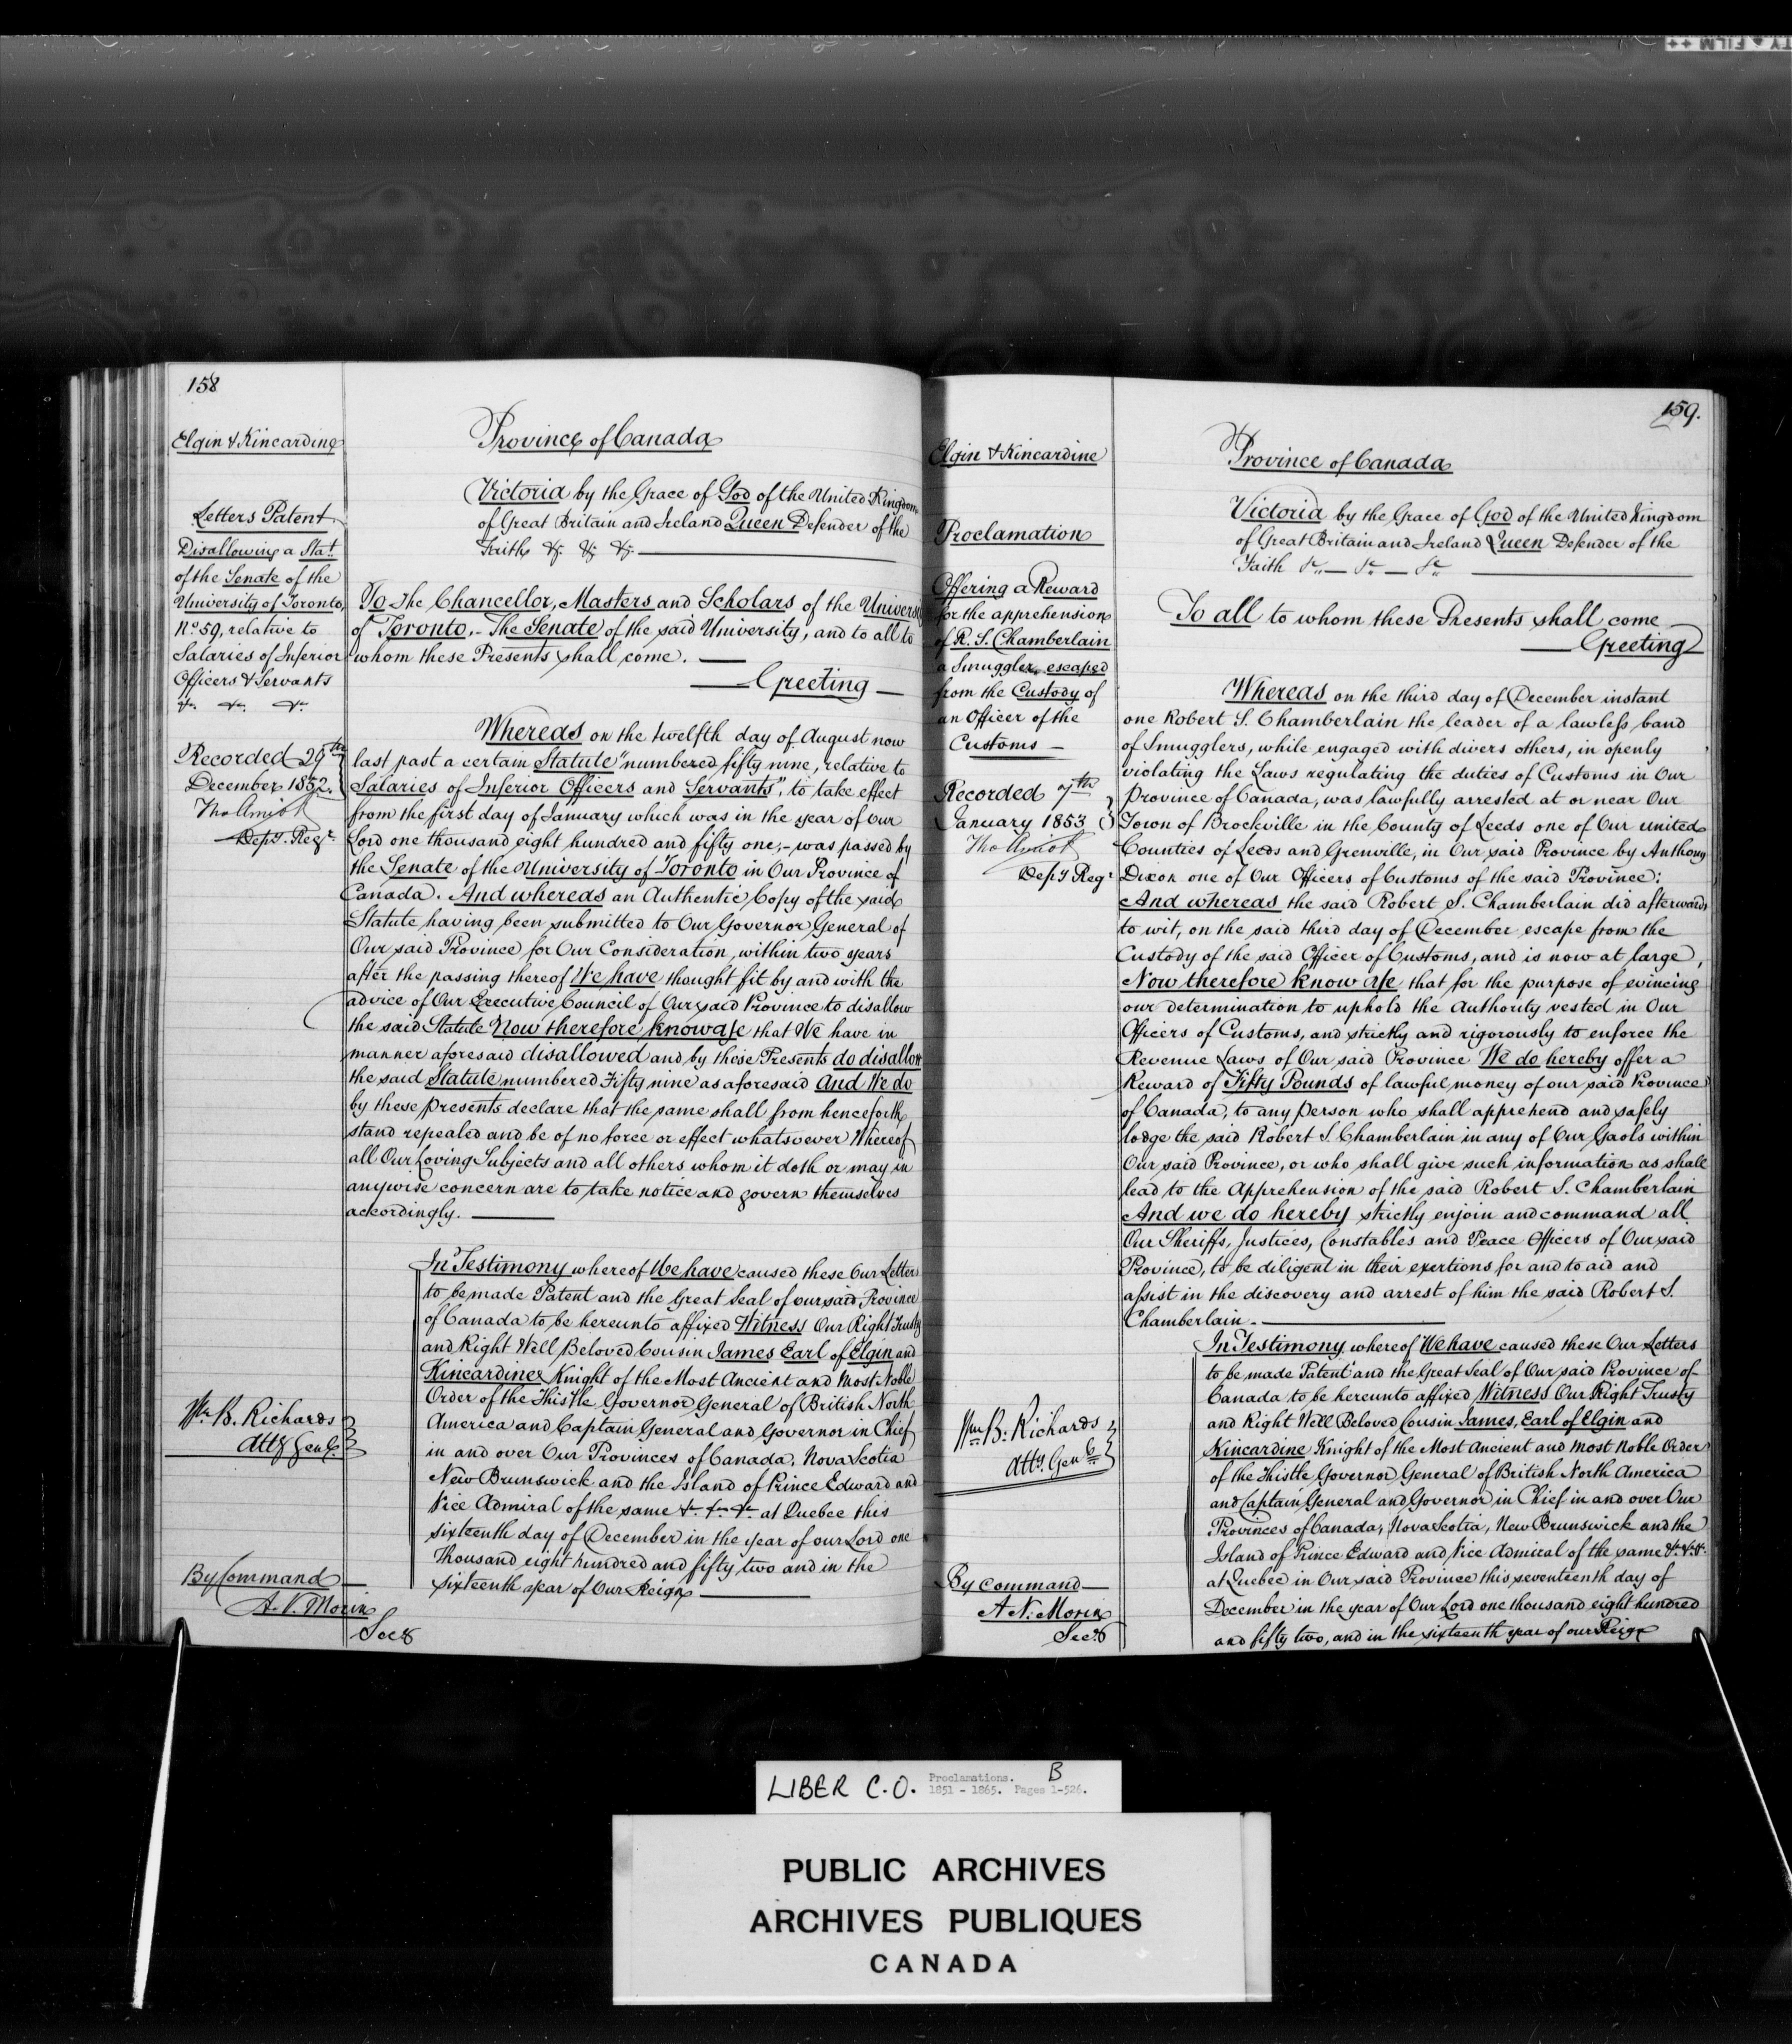 158
Elgin & Kincardine
Letters Patent
Disallowing a Stat.
of the Senate of the
University of Toronto,
No. 59, relative to
Salaries of Inferior
Officers & Servants
&c. &c. &c.
Recorded 29th
December 1852.
Tho Amiot
Depy. Regr.
Wm B. Richards
Atty Genl.
By Command
A. N. Morin
Secy
Province of Canada
Victoria by the Grace of God of the United Kingdom
of Great Britain and Ireland Queen Defender of the
Faith &c. &c. &c.
To The Chancellor, Masters and Scholars of the University
of Toronto. - The Senate of the said University, and to all to
whom these Presents shall come. —
— Greeting —
Whereas on the twelfth day of August now
last past a certain Statute "numbered fifty nine, relative to
Salaries of Inferior Officers and Servants", to take effect
from the first day of January which was in the year of our
Lord one thousand eight hundred and fifty one, - was passed by
the Senate of the University of Toronto in Our Province of
Canada. And whereas an Authentic Copy of the said
Statute having been submitted to Our Governor General of
Our said Province for Our Consideration, within two years
after the passing thereof We have thought fit by and with the
advice of Our Executive Council of Our said Province to disallow
the said Statute Now therefore know ye that We have in
manner aforesaid disallowed and by these Presents do disallow
the said Statute numbered Fifty nine as aforesaid And We do
by these presents declare that the same shall from henceforth
stand repealed and be of no force or effect whatsoever Whereof
all Our Loving Subjects and all others whom it doth or may in
anywise concern are to take notice and govern themselves
accordingly. —
In Testimony whereof We have caused these Our Letters
to be made Patent and the Great Seal of our said Province
of Canada to be hereunto affixed Witness Our Right Trusty
and Right Well Beloved Cousin James Earl of Elgin and
Kincardine Knight of the Most Ancient and Most Noble
Order of the Thistle Governor General of British North
America and Captain General and Governor in Chief
in and over Our Provinces of Canada, Nova Scotia
New Brunswick and the Island of Prince Edward and
Vice Admiral of the same &c. &c. &c. at Quebec this
sixteenth day of December in the year of our Lord one
Thousand eight hundred and fifty two and in the
sixteenth year of Our Reign —
159.
Elgin & Kincardine
Proclamation
Offering a Reward
for the apprehension
of R. S. Chamberlain
a Smuggler, escaped
from the Custody of
an Officer of the
Customs —
Recorded 7th
January 1853
Tho Amiot
Depy Regr
Wm B. Richards
Atty. Genl
By Command —
A. N. Morin
Secy
Province of Canada
Victoria by the Grace of God of the United Kingdom
of Great Britain and Ireland Queen Defender of the
Faith &c. — &c. — &c. —
To all to whom these Presents shall come
— Greeting
Whereas on the third day of December instant
one Robert S. Chamberlain the leader of a lawless band
of Smugglers, while engaged with divers others, in openly
violating the Laws regulating the duties of Customs in Our
Province of Canada, was lawfully arrested at or near Our
Town of Brockville in the County of Leeds one of Our united
Counties of Leeds and Grenville, in Our said Province by Anthony
Dixon one of Our Officers of Customs of the said Province:
And whereas the said Robert S. Chamberlain did afterwards
to wit, on the said third day of December escape from the
Custody of the said Officer of Customs, and is now at large,
Now therefore know Ye that for the purpose of evincing
our determination to uphold the Authority vested in Our
Officers of Customs, and strictly and rigorously to enforce the
Revenue Laws of Our said Province We do hereby offer a
Reward of Fifty Pounds of lawful money of our said Province
of Canada, to any person who shall apprehend and safely
lodge the said Robert S. Chamberlain in any of Our Gaols within
Our said Province, or who shall give such information as shall
lead to the Apprehension of the said Robert S. Chamberlain
And we do hereby strictly enjoin and command all
Our Sheriffs, Justices, Constables and Peace Officers of Our said
Province, to be diligent in their exertions for and to aid and
assist in the discovery and arrest of him the said Robert S.
Chamberlain. —
In Testimony whereof We have caused these Our Letters
to be made Patent and the Great Seal of Our said Province of
Canada to be hereunto affixed Witness Our Right Trusty
and Right Well Beloved Cousin James, Earl of Elgin and
Kincardine Knight of the Most Ancient and Most Noble Order
of the Thistle Governor General of British North America
and Captain General and Governor in Chief in and over Our
Provinces of Canada, Nova Scotia, New Brunswick and the
Island of Prince Edward and Vice Admiral of the same &c. &c. &c.
at Quebec in Our said Province this seventeenth day of
December in the year of Our Lord one thousand eight hundred
and fifty two, and in the sixteenth year of our Reign
LIBER C.O. Proclamations. B
1851 - 1865. Pages 1-526.
PUBLIC ARCHIVES
ARCHIVES PUBLIQUES
CANADA